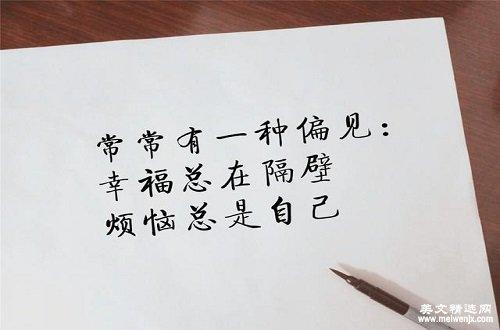 常常有一种偏见：
幸福总在隔壁
烦恼总是自己
美文精选网
www.meiwenjx.com